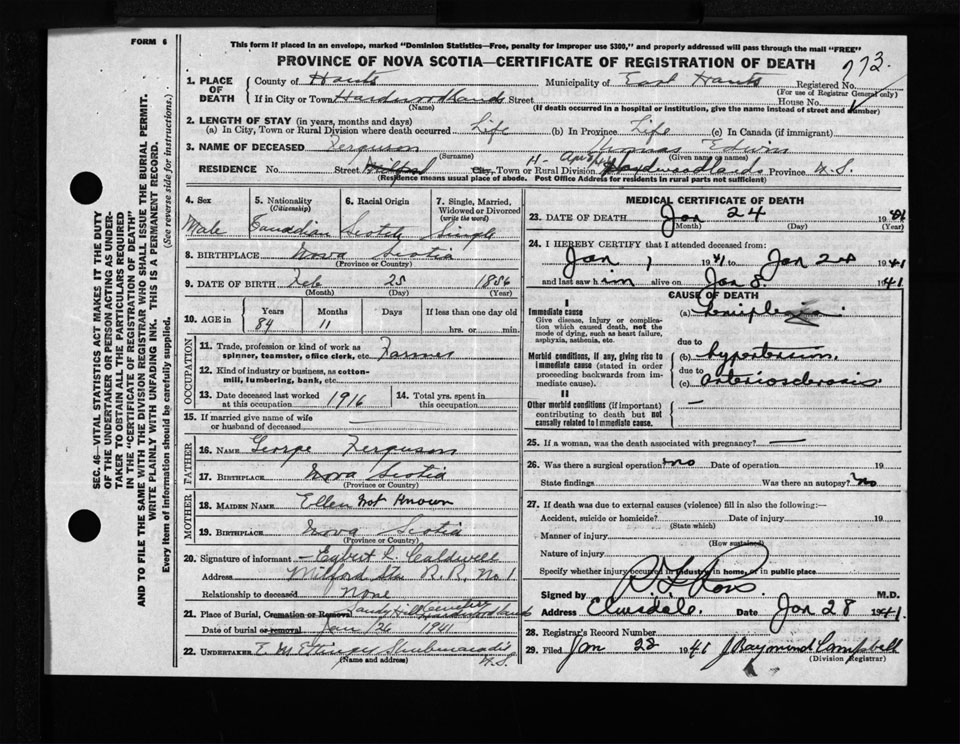 FORM 6
This form if placed in an envelope, marked "Dominion Statistics—Free, penalty for improper use $300," and properly addressed will pass through the mail "FREE"
PROVINCE OF NOVA SCOTIA—CERTIFICATE OF REGISTRATION OF DEATH
273.
1. PLACE OF DEATH
County of Hants Municipality of East Hants Registered No.
(For use of Registrar General only)
If in City or Town Hardwoodlands Street House No.
(Name) (If death occurred in a hospital or institution, give the name instead of street and number)
2. LENGTH OF STAY (in years, months and days)
(a) In City, Town or Rural Division where death occurred Life (b) In Province Life (c) In Canada (if immigrant)
3. NAME OF DECEASED Ferguson Thomas Edwin
(Surname) (Given name or names)
RESIDENCE No. Street Milford City, Town or Rural Division Hardwoodlands Province N.S.
(Residence means usual place of abode. Post Office Address for residents in rural parts not sufficient)
4. Sex 5. Nationality (Citizenship) 6. Racial Origin 7. Single, Married, Widowed or Divorced (write the word)
Male Canadian Scotch Single
8. BIRTHPLACE Nova Scotia
(Province or Country)
9. DATE OF BIRTH Feb 25 1856
(Month) (Day) (Year)
10. AGE in Years Months Days If less than one day old
84 11 hrs. or min.
OCCUPATION
11. Trade, profession or kind of work as spinner, teamster, office clerk, etc. Farmer
12. Kind of industry or business, as cotton-mill, lumbering, bank, etc.
13. Date deceased last worked at this occupation 1916 14. Total yrs. spent in this occupation
15. If married give name of wife or husband of deceased
FATHER
16. NAME George Ferguson
17. BIRTHPLACE Nova Scotia
(Province or Country)
MOTHER
18. MAIDEN NAME Ellen Not Known
19. BIRTHPLACE Nova Scotia
(Province or Country)
20. Signature of informant Egbert L. Caldwell
Address Milford Sta R.R. No. 1
Relationship to deceased None
21. Place of Burial, Cremation or Removal Sandy Hill Cemetery Hardwoodlands
Date of burial or removal Jan 26 1941
22. UNDERTAKER E M Ettinger Shubenacadie N.S.
(Name and address)
MEDICAL CERTIFICATE OF DEATH
23. DATE OF DEATH Jan 24 1941
(Month) (Day) (Year)
24. I HEREBY CERTIFY that I attended deceased from:
Jan 1 1941 to Jan 24 1941
and last saw him alive on Jan 8. 1941
CAUSE OF DEATH
I
Immediate cause
Give disease, injury or complication which caused death, not the mode of dying, such as heart failure, asphyxia, asthenia, etc.
(a) Hemiplegia
due to
Morbid conditions, if any, giving rise to immediate cause (stated in order proceeding backwards from immediate cause).
(b) hypertension.
due to
(c) arteriosclerosis.
II
Other morbid conditions (if important) contributing to death but not causally related to immediate cause.
25. If a woman, was the death associated with pregnancy? —
26. Was there a surgical operation? no Date of operation 19
State findings Was there an autopsy? no
27. If death was due to external causes (violence) fill in also the following:—
Accident, suicide or homicide? Date of injury 19
(State which)
Manner of injury
(How sustained)
Nature of injury
Specify whether injury occurred in industry, in home, or in public place
Signed by Ross M.D.
Address Elmsdale. Date Jan 28 1941
28. Registrar's Record Number
29. Filed Jan 28 1941 J Raymond Campbell
(Division Registrar)
SEC. 46—VITAL STATISTICS ACT MAKES IT THE DUTY
OF THE UNDERTAKER OR PERSON ACTING AS UNDER-
TAKER TO OBTAIN ALL THE PARTICULARS REQUIRED
IN THE "CERTIFICATE OF REGISTRATION OF DEATH"
AND TO FILE THE SAME WITH THE DIVISION REGISTRAR WHO SHALL ISSUE THE BURIAL PERMIT.
WRITE PLAINLY WITH UNFADING INK. THIS IS A PERMANENT RECORD.
Every item of information should be carefully supplied. (See reverse side for instructions.)